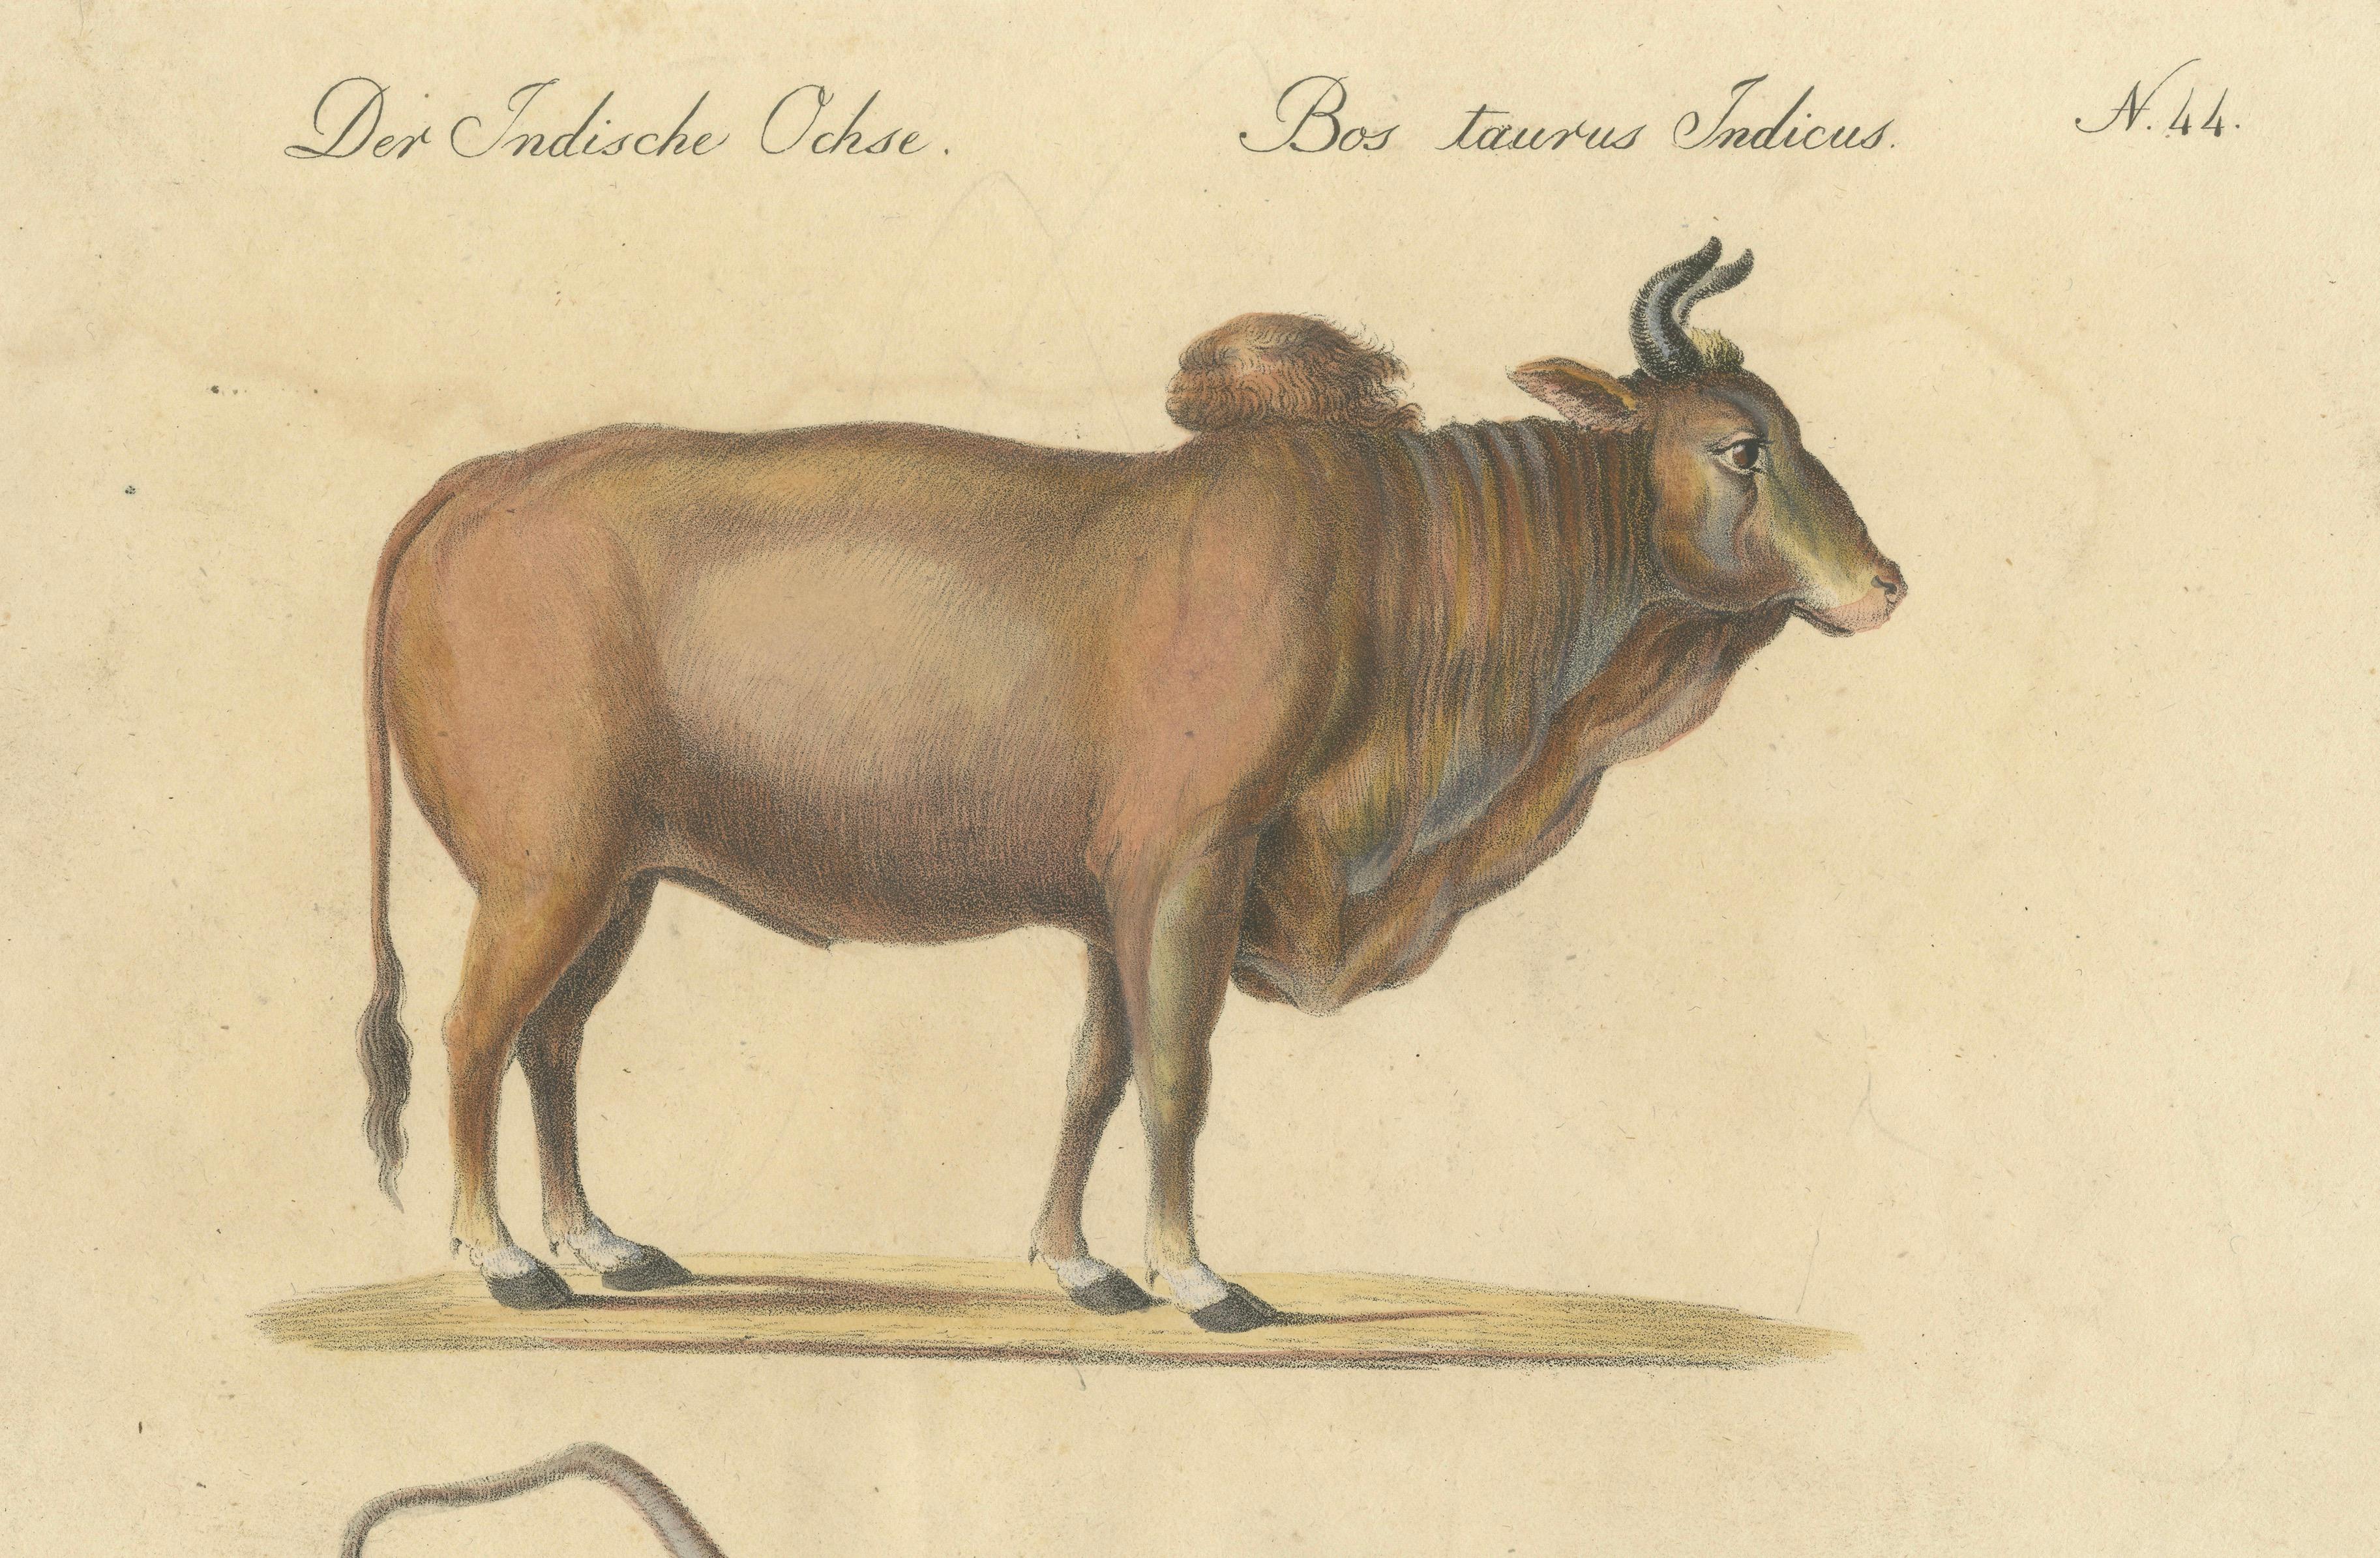 Der Indische Ochse. Bos taurus Indicus. N. 44.